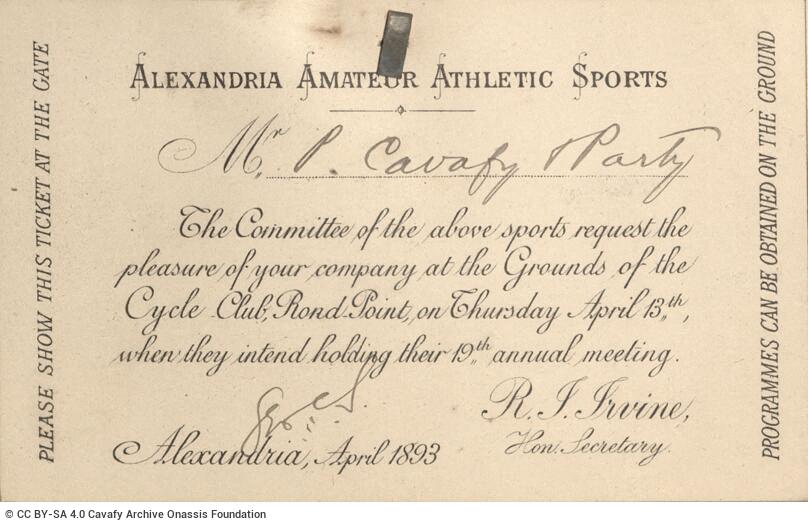 ALEXANDRIA AMATEUR ATHLETIC SPORTS
Mr. P. Cavafy & Party
The Committee of the above sports request the
pleasure of your company at the Grounds of the
Cycle Club, Rond Point, on Thursday April 13th,
when they intend holding their 19th annual meeting.
R. J. Irvine,
Hon. Secretary.
Alexandria, April 1893
PLEASE SHOW THIS TICKET AT THE GATE
PROGRAMMES CAN BE OBTAINED ON THE GROUND
© CC BY-SA 4.0 Cavafy Archive Onassis Foundation